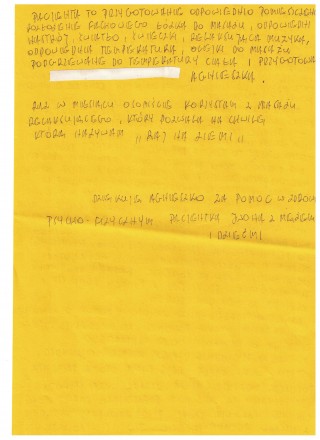 PACJENTA TO PRZYGOTOWANIE ODPOWIEDNIO POMIESZCZENIA
ŁÓŻKA DO MASAŻU, ODPOWIEDNI
NASTRÓJ, ŚWIATŁO, ŚWIECZKI, RELAKSUJĄCA MUZYKA,
ODPOWIEDNIA TEMPERATURA, OLEJKI DO MASAŻU
PODGRZEWANE DO TEMPERATURY CIAŁA I PRZYGOTOWANA
AGNIESZKA.
RAZ W MIESIĄCU OSOBIŚCIE KORZYSTAM Z MASAŻU
RELAKSUJĄCEGO, KTÓRY POZWALA NA CHWILĘ
KTÓRĄ NAZYWAM „RAJ NA ZIEMI”
DZIĘKUJĘ AGNIESZKO ZA POMOC W ZDROWIU
PSYCHO-FIZYCZNYM PACJENTKA IWONA Z MĘŻEM
I DZIEĆMI